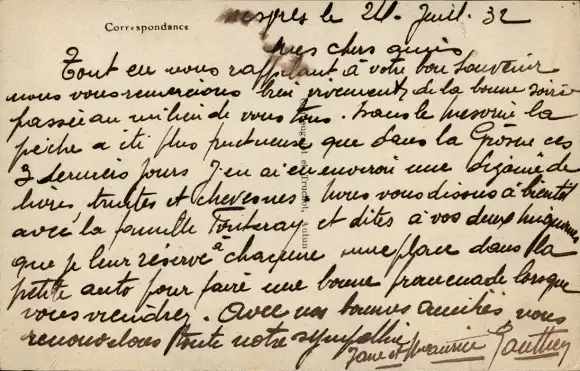 Correspondance
le 24. Juil. 32
mes chers amis
Tout en vous rappelant à votre bon souvenir
nous vous remercions bien vivement de la bonne soirée
passée au milieu de vous tous. Dans le mesvrin la
pêche a été plus fructueuse que dans la Grosne ces
3 derniers jours J'en ai eu environ une dizaine de
livres, truites et chevesnes. nous vous disons à bientôt
avec la famille et dites à vos deux mignonnes
que je leur réserve à chacune une place dans la
petite auto pour faire une bonne promenade lorsque
vous viendrez. Avec nos bonnes amitiés, vous
renouvelons toute notre sympathie
Jane et Maurice Gauthey